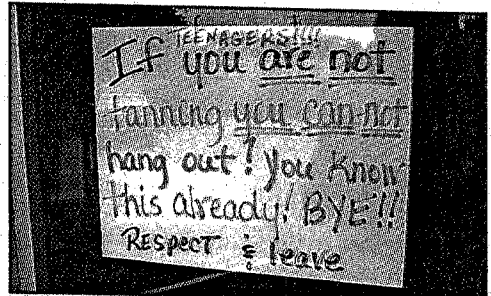 TEENAGERS!!!!
If you are not
tanning you can-not
hang out! You know
this already! BYE!!
RESPECT & leave